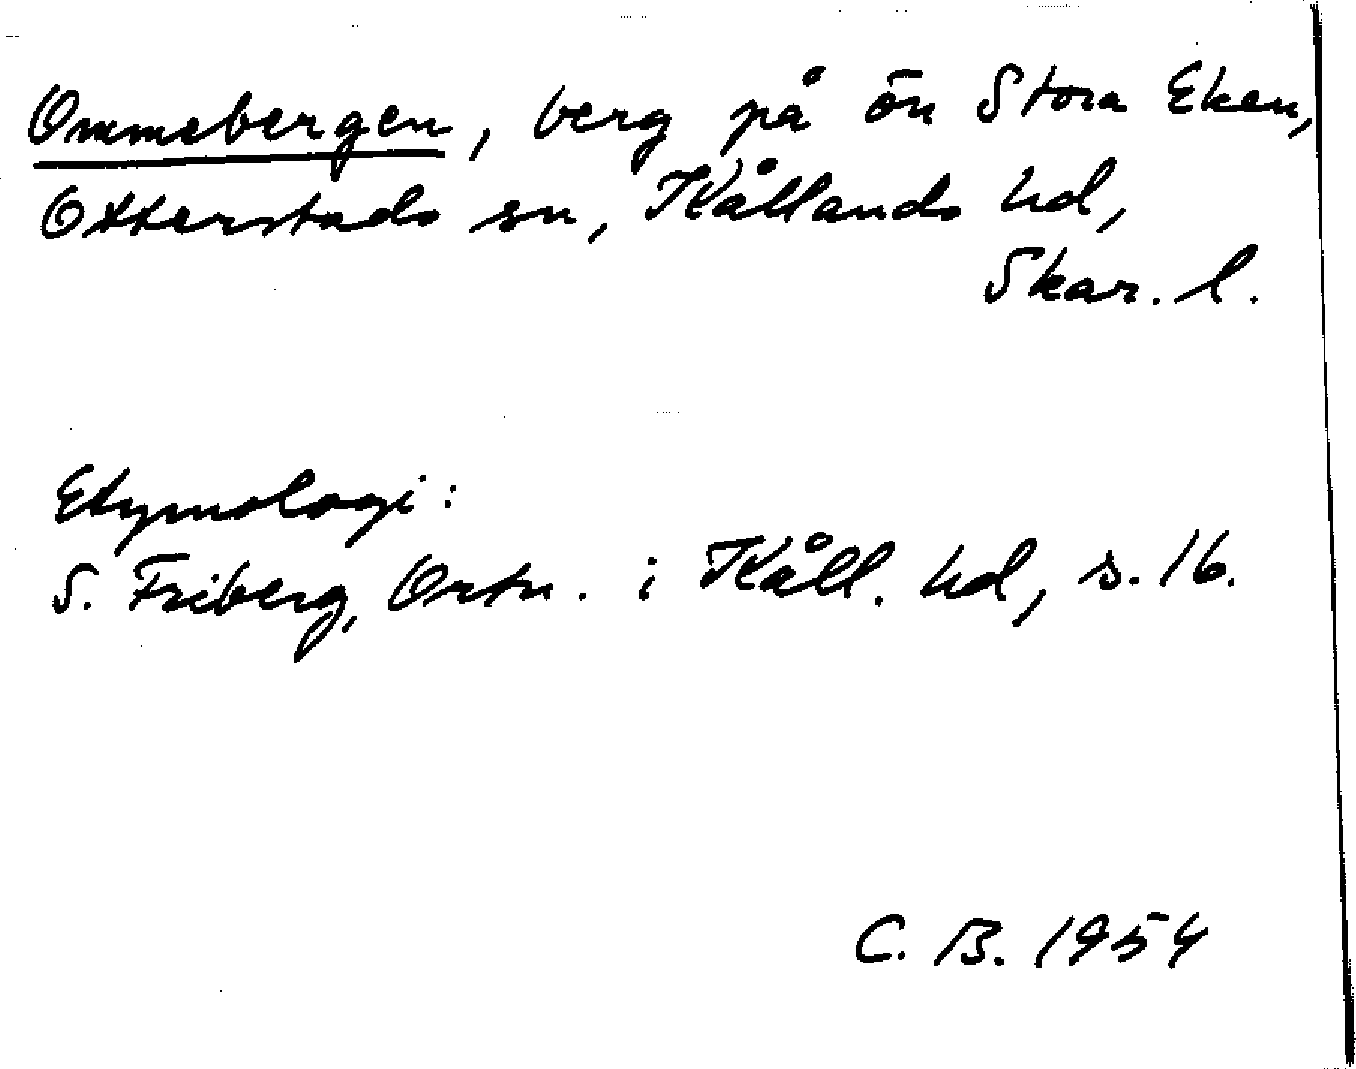 Ommebergen, berg på ön Stora Eken,
Otterstads sn, Kållands hd,
Skar. l.
Etymologi:
S. Friberg, Ortn. i Kåll. hd, s. 16.
C. B. 1954